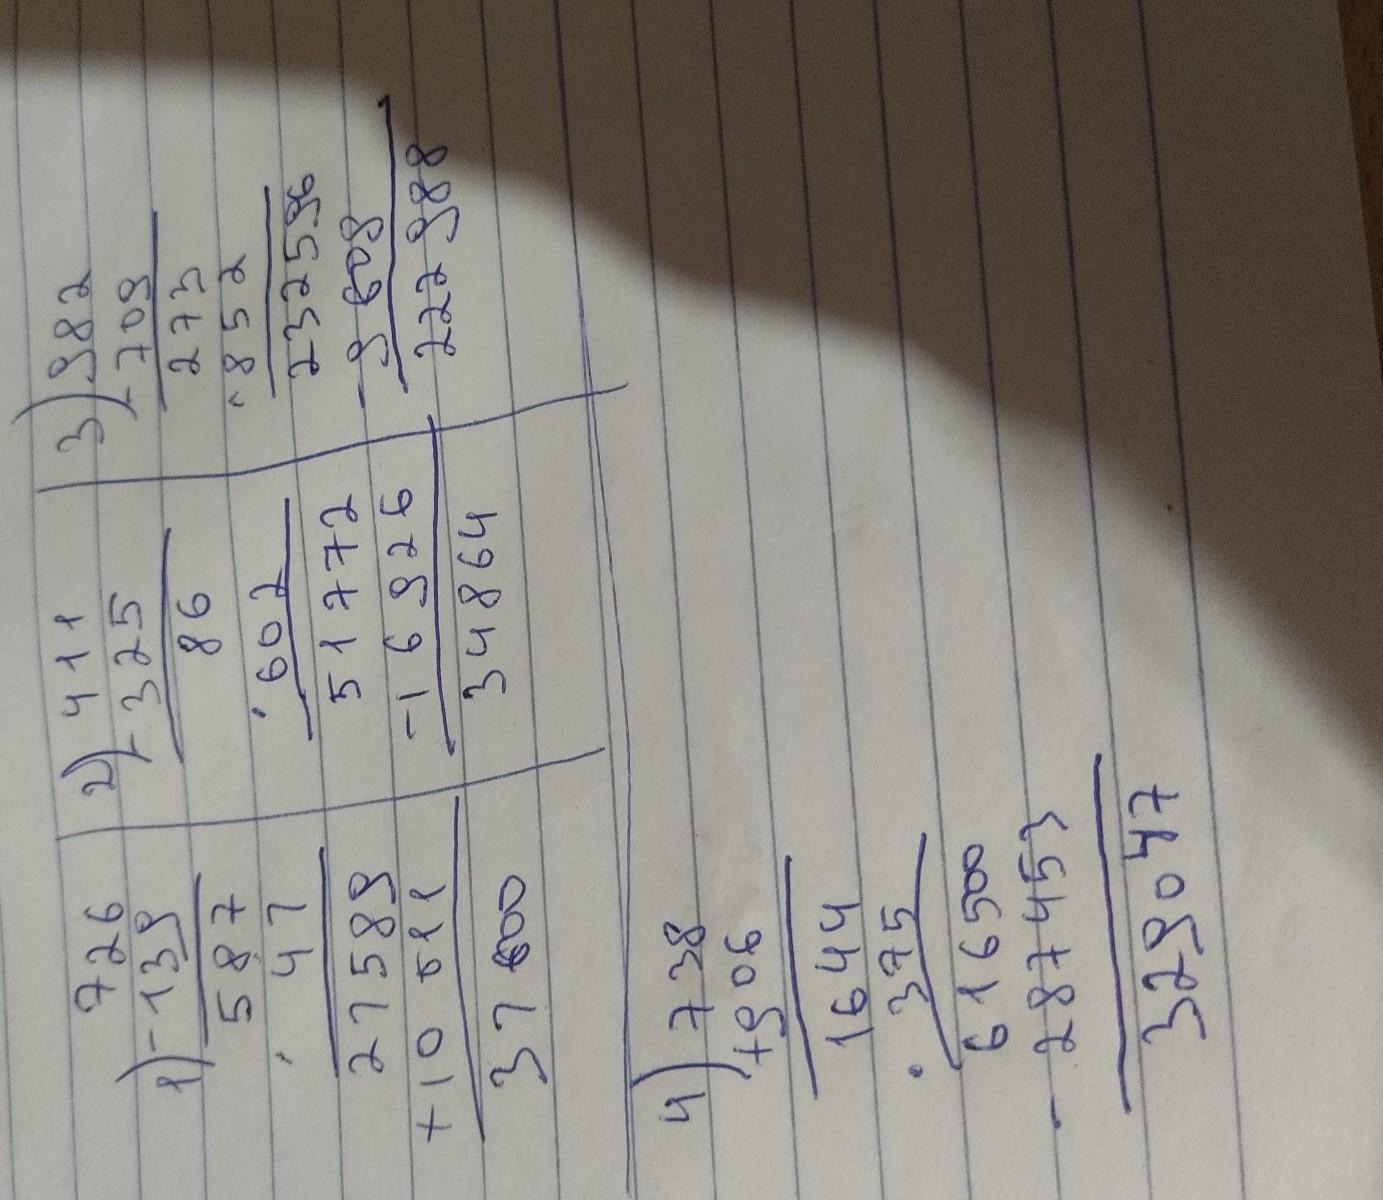 1) 726
-139
587
· 47
27589
+10 011
37600
2) 411
-325
86
·602
51772
-16926
34864
3) 982
-709
273
·852
232596
-9608
222988
4) 738
+906
1644
· 375
616500
- 287453
329047